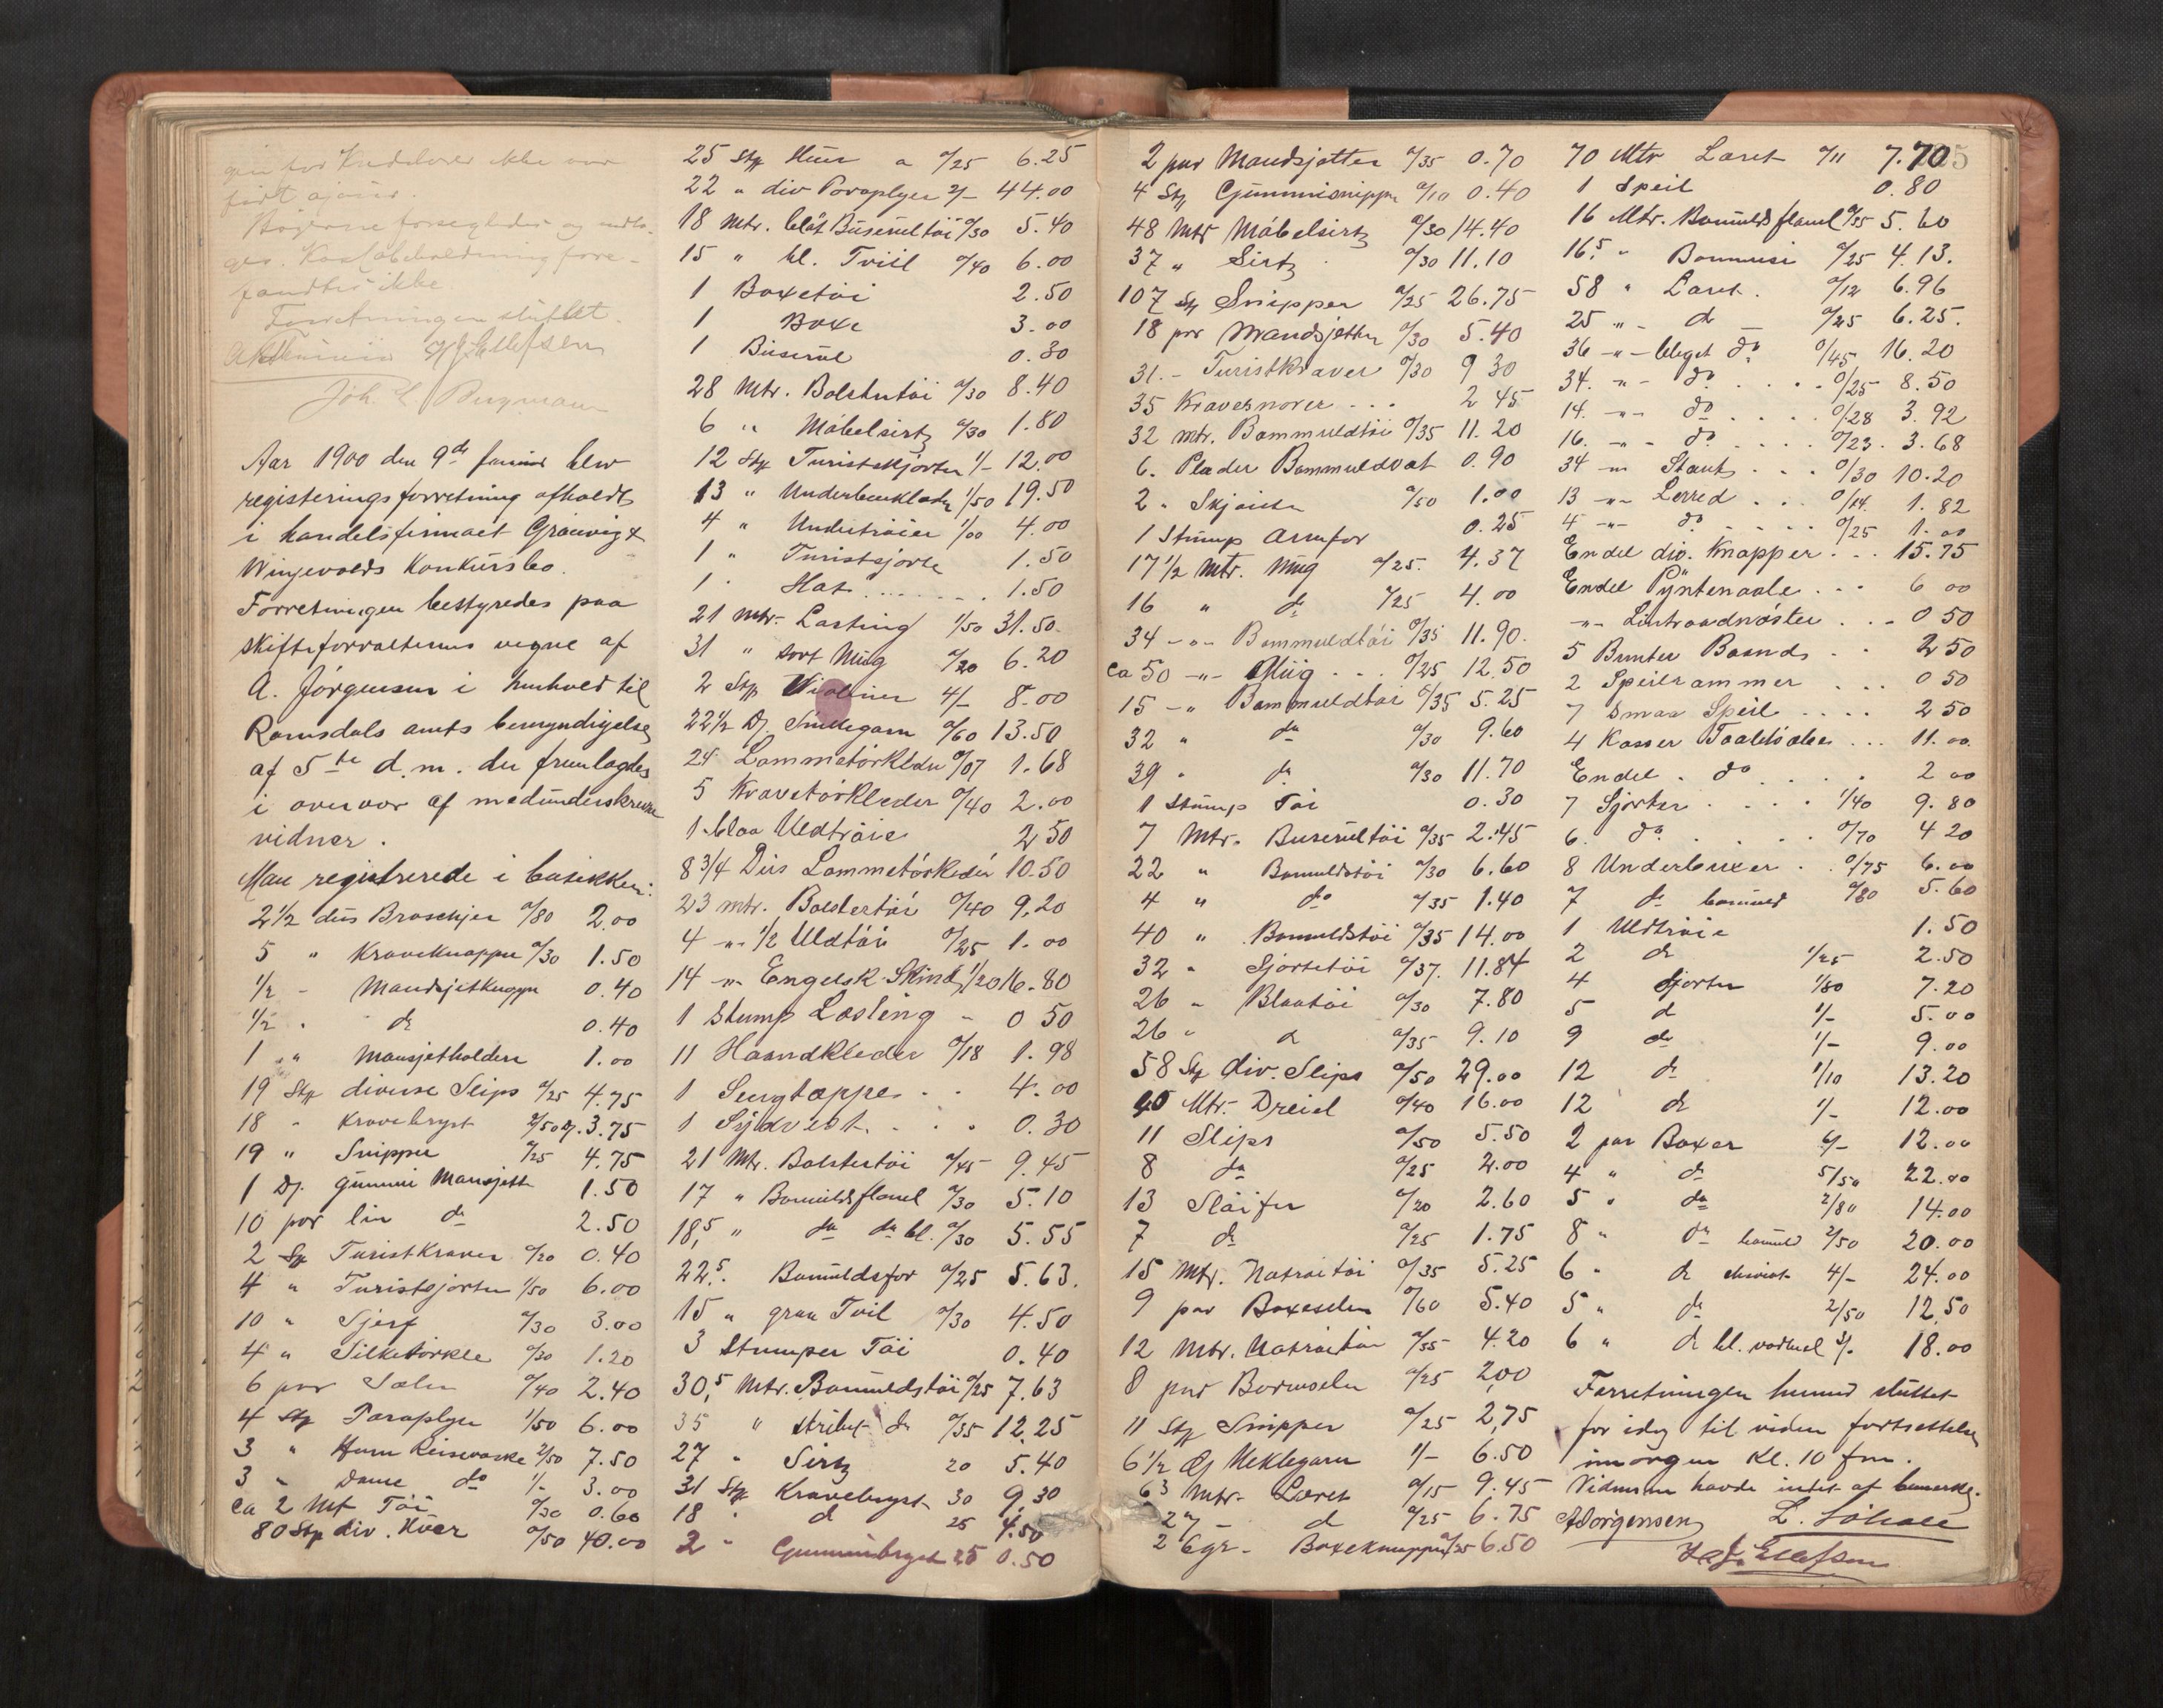 ikke var
ført ajour.
Bøgerne forsegledes og
fore-
fandtes ikke
Forretningen sluttet.
Ellefsen
Joh. E Bergmann
Aar 1900 den 9de blev
registeringsforretning afholdt
i handelsfirmaet Grönvig &
Wingevolds Konkursbo.
Forretningen bestyredes paa
skifteforvalterens vegne af
A. Jörgensen i henhold til
Romsdals amts bemyndigelse
af 5te d.m. der fremlagdes
i overvær af medunderskrevne
vidner.
Man registrerede i butikken:
2½ dus Broschjer a/80 2.00
5 " Kraveknapper a/30 1.50
½ - Mandsjetknapper 0.40
½ " do 0.40
1 " Mansjetholdere 1.00
19 Stk diverse Slips a/25 4.75
18 " Kravebryst 2/50 Dj. 3.75
19 " Snipper a/25 4.75
1 Dj. gummi Mansjetter 1.50
10 par lin do 2.50
2 Stk Turistkraver a/20 0.40
4 " Turistsjorter 1/50 6.00
10 " Sjerf a/30 3.00
4 " Silketörkle a/30 1.20
6 par Saler a/40 2.40
4 Stk Paraplyer 1/50 6.00
3 " Herre Reisevæske 2/50 7.50
3 " Dame do 1/- 3.00
ca 2 Mt Töi a/30 0.60
80 Stk div. Huer a/50 40.00
25 Stk Huer a a/25 6.25
22 " div Paraplyer 2/- 44.00
18 Mtr. blåt Buserultöi a/30 5.40
15 " bl. Tvill a/40 6.00
1 Boxetöi 2.50
1 Boxe 3.00
1 Buserul 0.30
28 Mtr. Bolstertöi a/30 8.40
6 " Möbelsirtz a/30 1.80
12 Stk Turistskjorter 1/- 12.00
13 " Underbenklæder 1/50 19.50
4 " Undertröier 1/00 4.00
1 " Turistsjorte 1.50
1 " Hat . . . . . . 1.50
21 Mtr. Lasting 1/50 31.50
31 " sort Mug a/20 6.20
2 Stk Violiner 4/- 8.00
22½ Dj. Snellegarn a/60 13.50
24 Lommetörklæder a/07 1.68
5 Kravetörkleder a/40 2.00
1 blaa Uldtröie 2 50
8 3/4 Dus Lommetörkleder 10.50
23 mtr. Bolstertöi a/40 9,20
4 -"- ½ Uldtöi a/25 1.00
14 -"- Engelsk Skind 1/20 16.80
1 Stump Lasting - 0 50
11 Haandkleder a/18 1.98
1 Sengtæppe . . 4.00
1 Sydvest . . . 0.30
21 Mtr. Bolstertöi a/45 9.45
17 " Bomuldsflonel a/30 5.10
18,5 " do do bl. a/30 5.55
22.5. Bomuldsfor a/25 5.63.
15 " graa Tvil a/30 4.50
3 Stumper Töi 0.40
30,5 Mtr. Bomuldstöi a/25 7.63
35 " stribet do a/35 12,25
27 " Sirtz 20 5.40
31 Stk Kravebryst 30 9,30
18 " d 25 4.50
2 " Gummibryst 25 0.50
2 par Mandsjetter a/35 0.70
4 Stk Gummisnipper a/10 0.40
48 Mtr Möbelsirtz a/30 14.40
37 " Sirtz a/30 11.10
107 Stk Snipper a/25 26.75
18 par Mandsjetter a/30 5.40
31. - Turistkraver a/30 9 30
35 Kravesnorer . . . 2 45
32 mtr. Bommuldtöi a/35 11.20
6. Plader Bommuldvat 0.90
2 " Skjörter a/50 1.00
1 Stump Armfor 0.25
17 1/2 Mtr. Mug a/25. 4.37
16 " do a/25 4.00
34 -"- Bommuldtöi a/35 11.90.
ca 50 -"- Mug . . . a/25 12.50
15 -" Bommuldtöi a/35 5.25
32 " do a/30 9.60
39 " do a/30 11.70
1 Stump Töi 0.30
7 Mtr. Buserultöi a/35 2.45
22 " Bomuldstöi a/30 6.60
4 " do a/35 1.40
40 " Bomuldstöi a/35 14.00
32 " Sjortetöi a/37. 11.84
26 " Blaatöi a/30 7.80
26 " d a/35 9.10
58 Stk div. Slips a/50 29.00
40 Mtr. Dreiel a/40 16.00
11 Slips a/50 5.50
8 do a/25 2.00
13 Slöifer a/20 2.60
7 do a/25 1.75
15 Mtr. Natröitöi a/35 5.25
9 par Boxeseler a/60 5.40
12 Mtr. Natröitöi a/35 4.20
8 par Barneseler a/25 2,00
11 Stk Snipper a/25 2,75
6 1/2 Dj Heklegarn 1/- 6.50
63 Mtr. Læret a/15 9.45
27 - d a/25 6.75
2 Egr. Boxeknapper 6.50
70 Mtr Læret a/11 7.70
1 Speil 0.80
16 Mtr. Bomuldsflanel a/35 5.60
16.5 " Bommesi a/25 4.13.
58 " Læret. a/12 6.96
25 " - d - a/25 6.25.
36 -"- bleget do a/45 16.20
34. -"- do . . . . a/25 8.50
14. -"- do . . . . a/28 3.92
16. -"- do . . . . a/23. 3.68
34 -"- Stauts . . . a/30 10.20
13 -"- Lerred . . . a/14. 1.82
4 -"- do . . . . a/25 1.00
Endel div. Knapper . . . 15.75
Endel Pyntenaale . . . 6 00
-"- Lintraadnöster . . . 0 50
5 Bunter Baand . . 2 50
2 Speilrammer . . . 0 50
7 Smaa Speil . . . . 2 50
4 Kasser Toaletsæber . . . 11.00.
Endel . do . . . . 2 00
7 Sjorter . . . . 1/40 9.80
6. do . . . . a/70 4 20
8 Underbuxer . . a/75 6.00
7 do bomuld a/80 5.60
1 Uldtröie 1.50
2 do 1/25 2.50
4 Sjorter 1/80 7.20
5 d 1/- 5.00
9 do 1/- 9.00
12 do 1/10 13.20
12 do 1/- 12.00
2 par Boxer 6/- 12.00
4 " do 5/50 22.00
5 " do 2/80 14.00
8 " do bomuld 2/50 20.00
6 " do cheviot 4/- 24.00
5 " do 2/50 12,50
6 " d bl. vadmel 3/- 18.00
Forretningen herved sluttet
for idag til viden fortsettelse
imorgen Kl. 10 fm.
Vidnerne havde intet at bemerke.
AJörgensen L. Söholt
Ellefsen